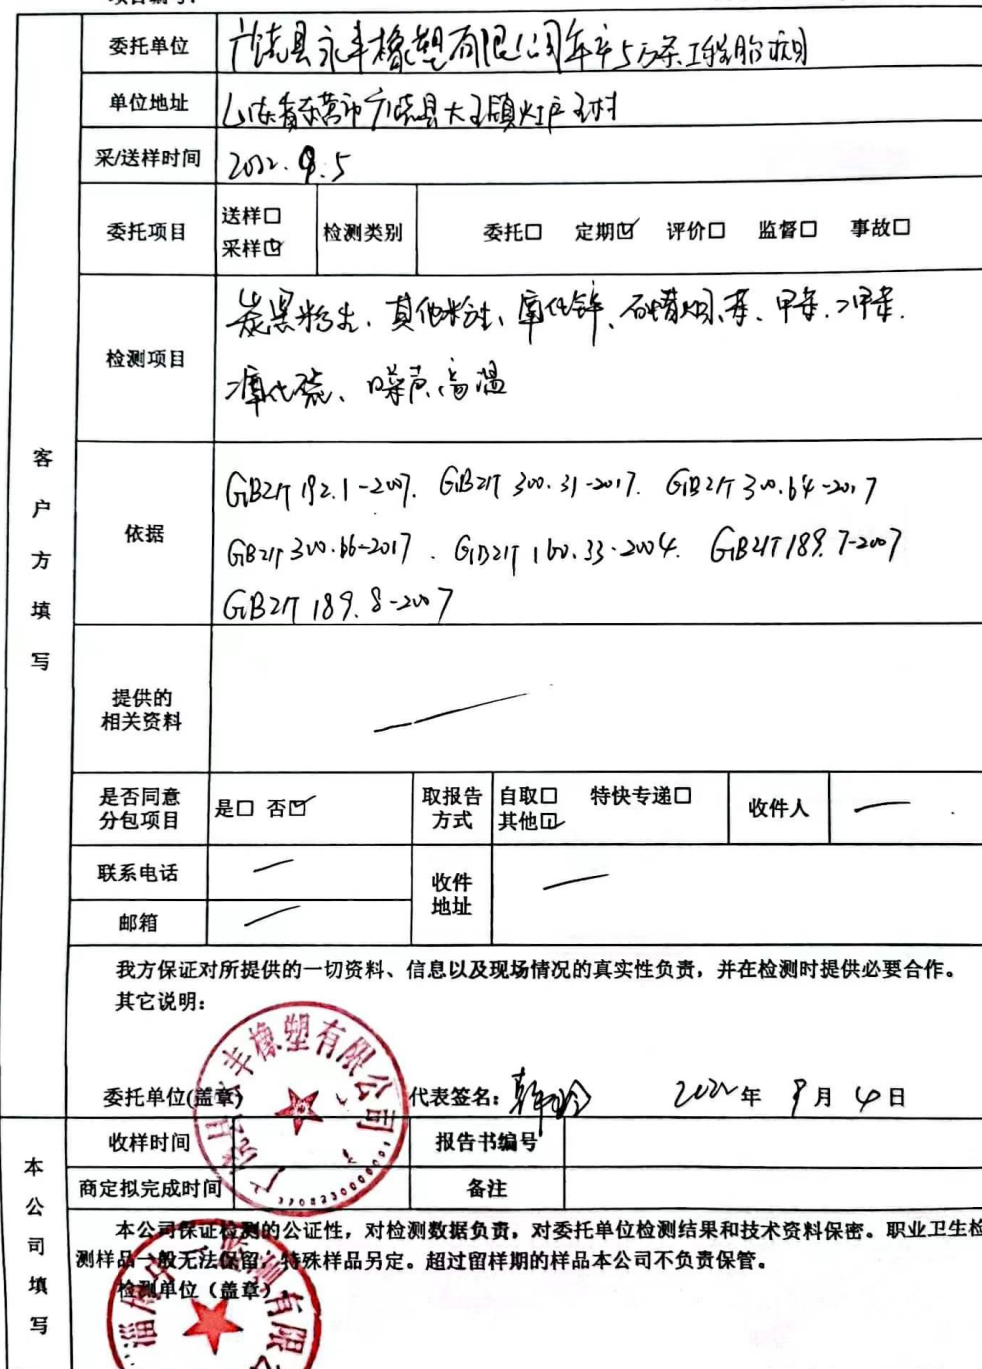 委托单位 广饶县永丰橡塑有限公司年产5万条工程胎项目
单位地址 山东省东营市广饶县大王镇灶户王村
采/送样时间 2022.9.5
委托项目 送样□ 采样☑ 检测类别 委托□ 定期☑ 评价□ 监督□ 事故□
检测项目 炭黑粉尘、其他粉尘、氧化锌、石蜡烟、苯、甲苯、二甲苯、
二氧化硫、噪声、高温
客户方填写
依据 GBZ/T 192.1-2007. GBZ/T 300.31-2017. GBZ/T 300.64-2017
GBZ/T 300.66-2017. GBZ/T 160.33-2004. GBZ/T 189.7-2007
GBZ/T 189.8-2007
提供的
相关资料
是否同意
分包项目 是□ 否☑ 取报告
方式 自取□ 特快专递□
其他☑ 收件人
联系电话 收件
地址
邮箱
我方保证对所提供的一切资料、信息以及现场情况的真实性负责，并在检测时提供必要合作。
其它说明：
委托单位(盖章) 代表签名： 2022年9月4日
丰橡塑有限公司
本公司填写
收样时间 报告书编号
商定拟完成时间 备注
本公司保证检测的公证性，对检测数据负责，对委托单位检测结果和技术资料保密。职业卫生检
测样品一般无法保留，特殊样品另定。超过留样期的样品本公司不负责保管。
检测单位（盖章）